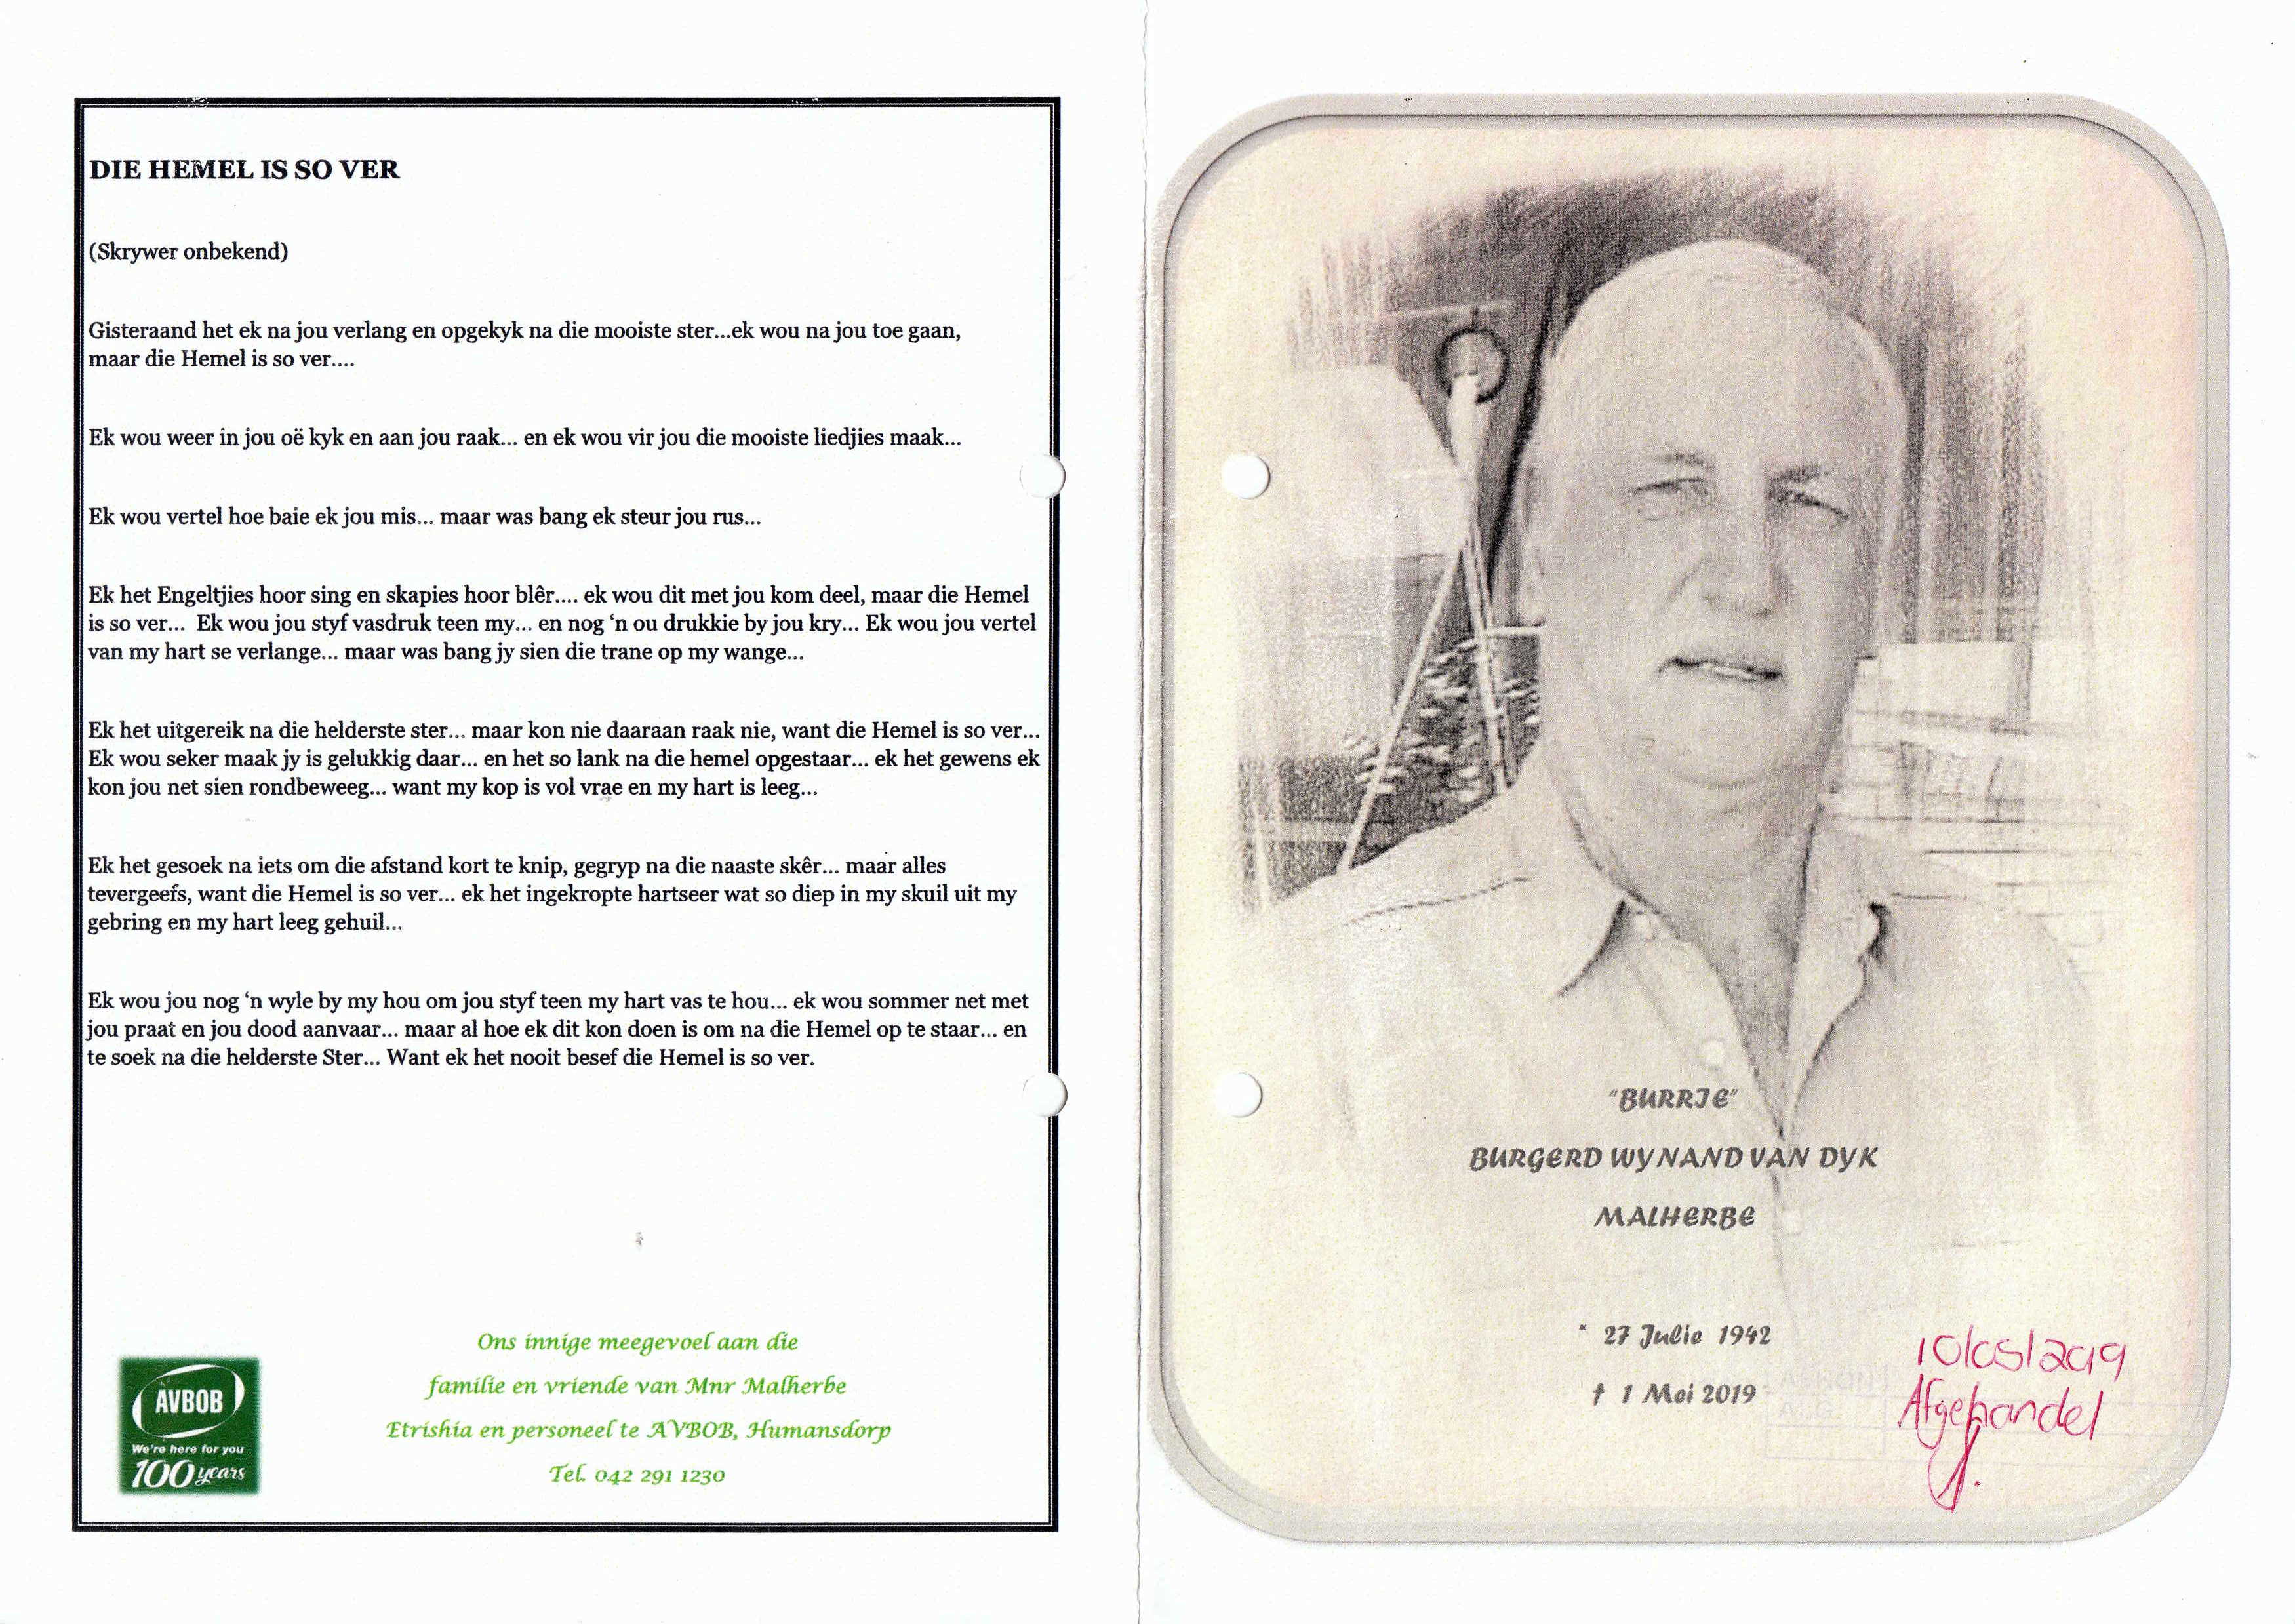 DIE HEMEL IS SO VER
(Skrywer onbekend)
Gisteraand het ek na jou verlang en opgekyk na die mooiste ster...ek wou na jou toe gaan,
maar die Hemel is so ver....
Ek wou weer in jou oë kyk en aan jou raak... en ek wou vir jou die mooiste liedjies maak...
Ek wou vertel hoe baie ek jou mis... maar was bang ek steur jou rus...
Ek het Engeltjies hoor sing en skapies hoor blêr.... ek wou dit met jou kom deel, maar die Hemel
is so ver... Ek wou jou styf vasdruk teen my... en nog ‘n ou drukkie by jou kry... Ek wou jou vertel
van my hart se verlange... maar was bang jy sien die trane op my wange...
Ek het uitgereik na die helderste ster... maar kon nie daaraan raak nie, want die Hemel is so ver...
Ek wou seker maak jy is gelukkig daar... en het so lank na die hemel opgestaar... ek het gewens ek
kon jou net sien rondbeweeg... want my kop is vol vrae en my hart is leeg...
Ek het gesoek na iets om die afstand kort te knip, gegryp na die naaste skêr... maar alles
tevergeefs, want die Hemel is so ver... ek het ingekropte hartseer wat so diep in my skuil uit my
gebring en my hart leeg gehuil...
Ek wou jou nog ‘n wyle by my hou om jou styf teen my hart vas te hou... ek wou sommer net met
jou praat en jou dood aanvaar... maar al hoe ek dit kon doen is om na die Hemel op te staar... en
te soek na die helderste Ster... Want ek het nooit besef die Hemel is so ver.
Ons innige meegevoel aan die
familie en vriende van Mnr Malherbe
Etrishia en personeel te AVBOB, Humansdorp
Tel. 042 291 1230
AVBOB
We're here for you
100 years
"BURRIE"
BURGERD WYNAND VAN DYK
MALHERBE
* 27 Julie 1942
† 1 Mei 2019
10/05/2019
Afgehandel